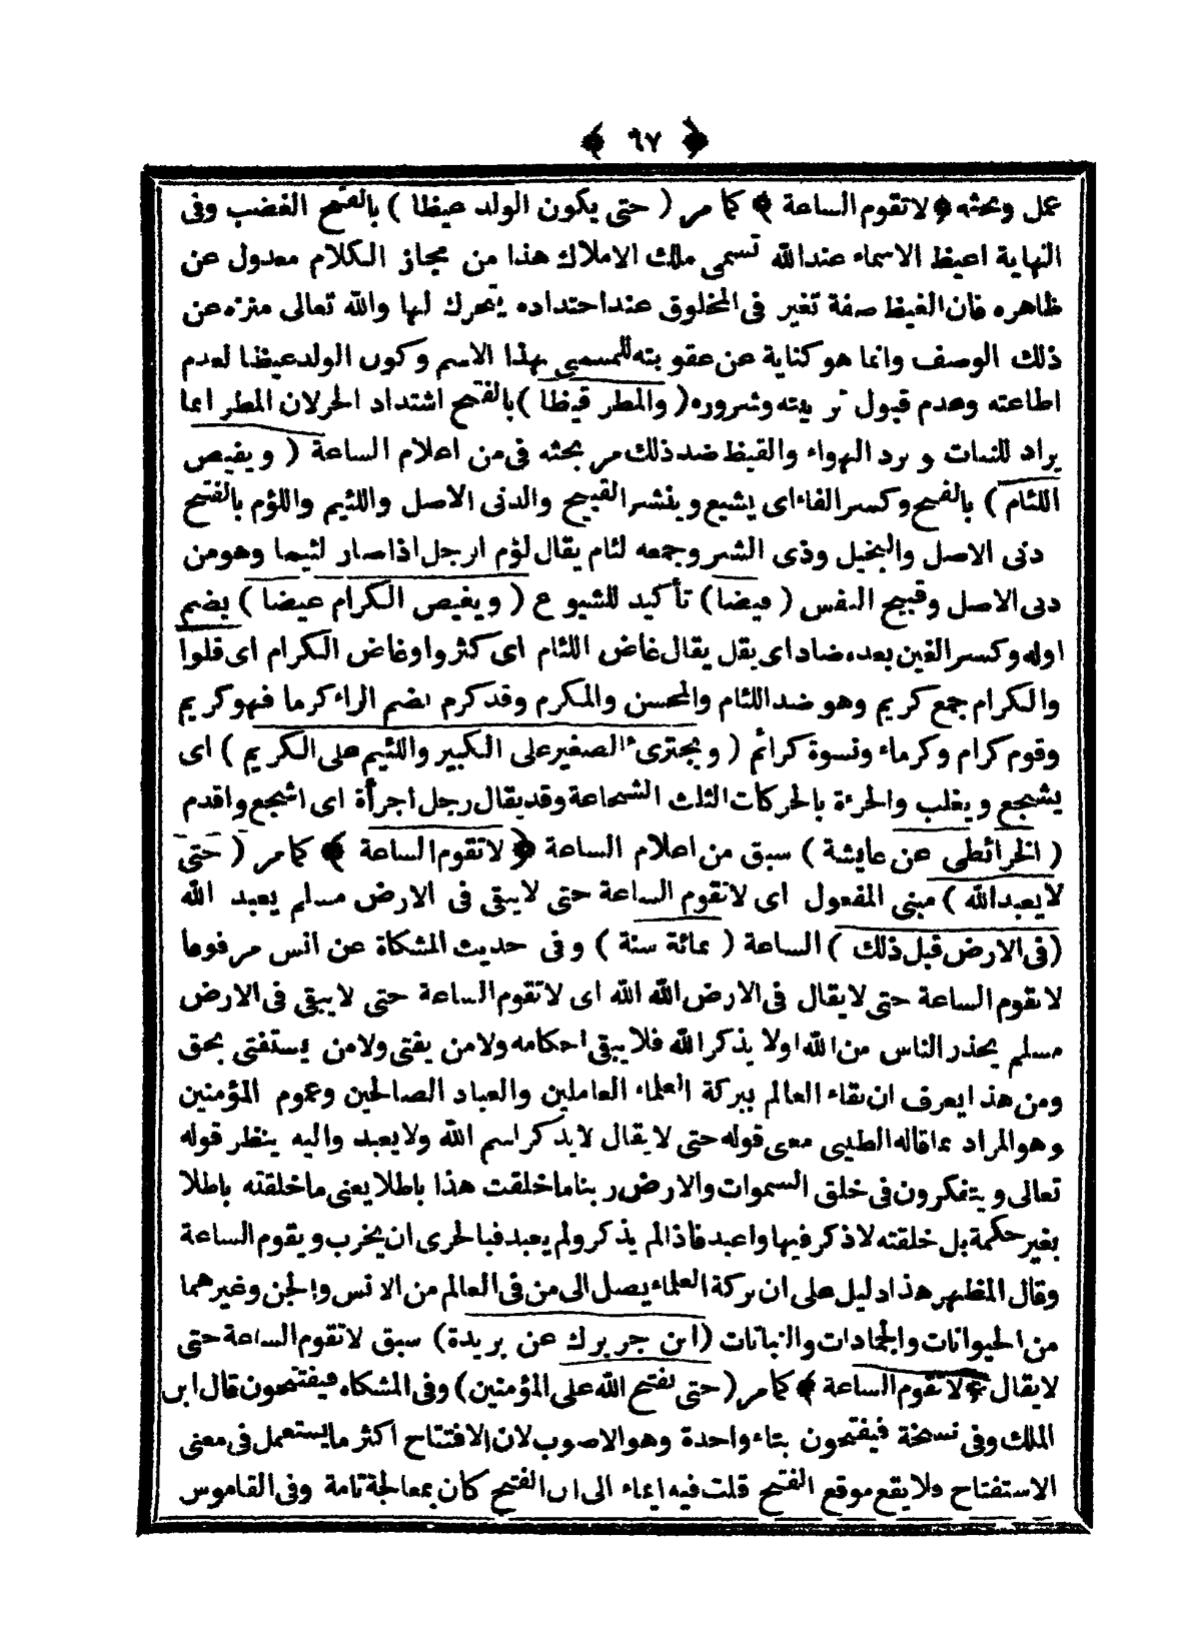 ﴿ ٩٧ ﴾
عمل وبحثه ﴿ لا تقوم الساعة ﴾ كما مر ( حتى يكون الولد غيظا ) بالفتح الغضب وفى
النهاية اغيظ الاسماء عند الله تسمى ملك الاملاك هذا من مجاز الكلام معدول عن
ظاهره فان الغيظ صفة تغير فى المخلوق عند احتداده يتحرك لها والله تعالى منزه عن
ذلك الوصف وانما هو كناية عن عقوبته للمسمى بهذا الاسم وكون الولد غيظا لعدم
اطاعته وعدم قبول تربيته وشروره ( والمطر قيظا ) بالفتح اشتداد الحر لان المطر انما
يراد للنبات وبرد الهواء والقيظ ضد ذلك مر بحثه فى من اعلام الساعة ( ويفيض
اللثام ) بالفتح وكسر الفاء اى يشيع وينشر القبيح والدنى الاصل واللئيم واللؤم بالفتح
دنى الاصل والبخيل وذى الشر وجمعه لئام يقال لؤم الرجل اذا صار لئيما وهو من
دنى الاصل وقبيح النفس ( فيضا ) تأكيد للشيوع ( ويغيض الكرام غيضا ) بضم
اوله وكسر الغين بعده ضاد اى يقل يقال غاض اللثام اى كثروا وغاض الكرام اى قلوا
والكرام جمع كريم وهو ضد اللثام والمحسن والمكرم وقد كرم بضم الراء كرما فهو كريم
وقوم كرام وكرماء ونسوة كرائم ( ويجترىء الصغير على الكبير واللئيم على الكريم ) اى
يشجع ويغلب والجرءة بالحركات الثلث الشجاعة وقد يقال رجل اجرأة اى اشجع واقدم
( الخرائطى عن عايشة ) سبق من اعلام الساعة ﴿ لا تقوم الساعة ﴾ كما مر ( حتى
لا يعبد الله ) مبنى المفعول اى لا تقوم الساعة حتى لا يبقى فى الارض مسلم يعبد الله
( فى الارض قبل ذلك ) الساعة ( بمائة سنة ) وفى حديث المشكاة عن انس مرفوعا
لا تقوم الساعة حتى لا يقال فى الارض الله الله اى لا تقوم الساعة حتى لا يبقى فى الارض
مسلم يحذر الناس من الله اولا يذكر الله فلا يبقى احكامه ولا من يفتى ولا من يستفتى بحق
ومن هذا يعرف ان بقاء العالم ببركة العلماء العاملين والعباد الصالحين وعموم المؤمنين
وهو المراد مما قاله الطيبى معنى قوله حتى لا يقال لا يذكر اسم الله ولا يعبد واليه ينظر قوله
تعالى ويتفكرون فى خلق السموات والارض ربنا ما خلقت هذا باطلا يعنى ما خلقته باطلا
بغير حكمة بل خلقته لاذكر فيها واعبد فاذا لم يذكر ولم يعبد فبالحرى ان يخرب ويقوم الساعة
وقال المظهر هذا دليل على ان بركة العلماء يصل الى من فى العالم من الانس والجن وغيرهما
من الحيوانات والجمادات والنباتات ( ابن جرير ك عن بريدة ) سبق لا تقوم الساعة حتى
لا يقال ﴿ لا تقوم الساعة ﴾ كما مر ( حتى تفتح الله على المؤمنين ) وفى المشكاه فيفتتحون قال ابن
الملك وفى نسخة فيفتحون بتاء واحدة وهو الاصوب لان الافتتاح اكثر ما يستعمل فى معنى
الاستفتاح ولا يقع موقع الفتح قلت فيه ايماء الى ان الفتح كان بمعالجة تامة وفى القاموس